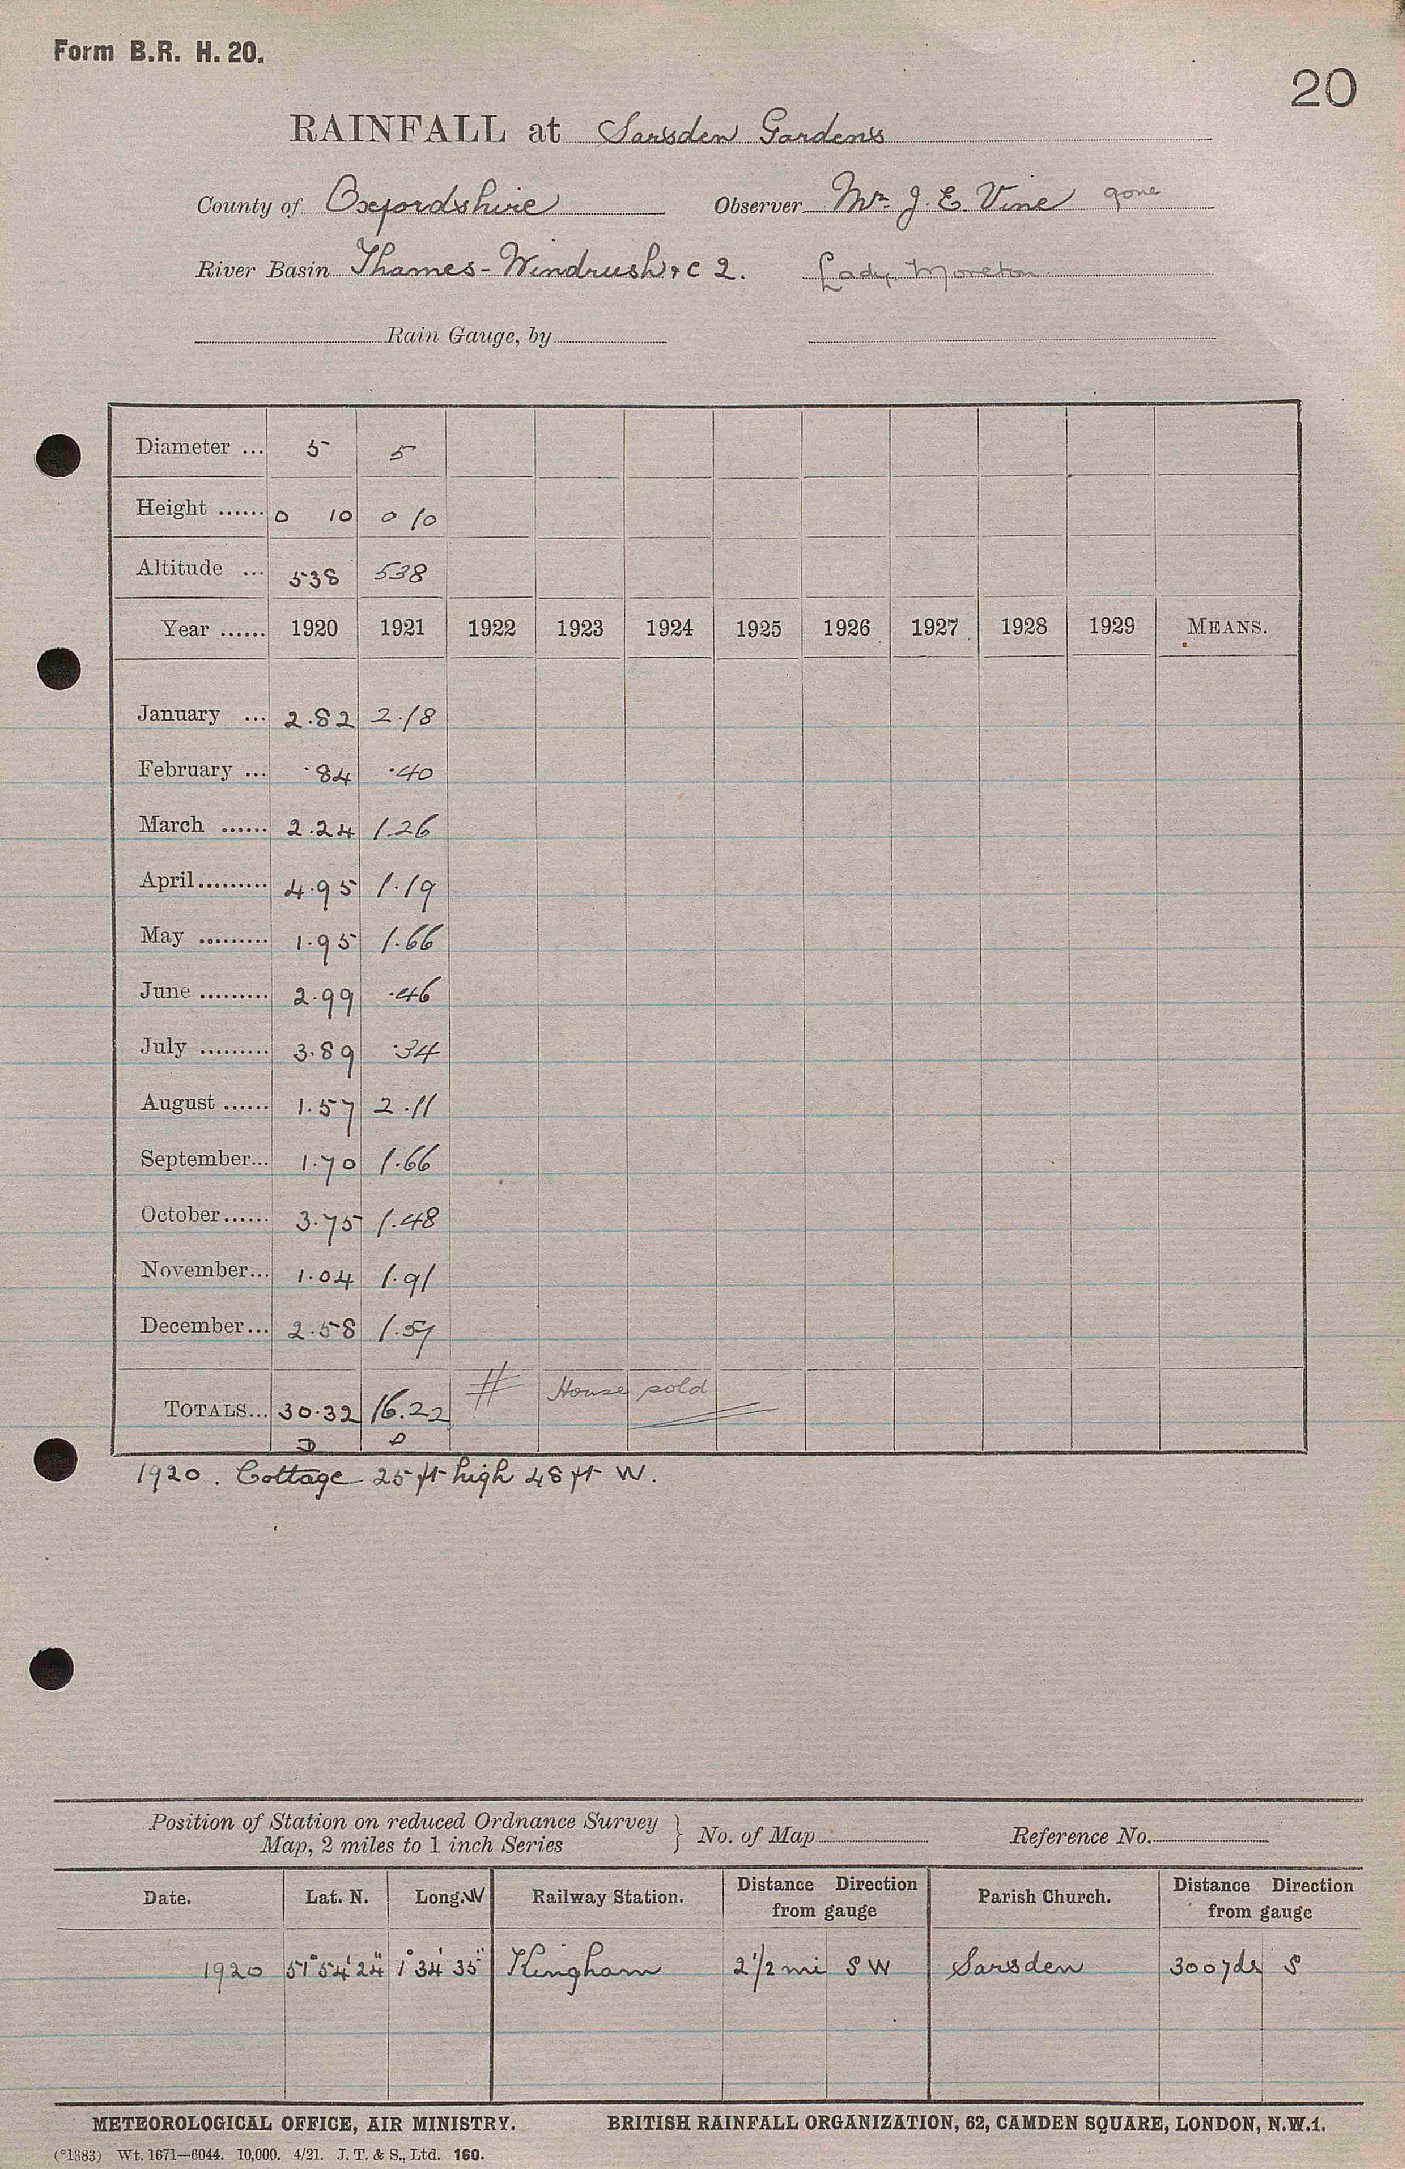 Form B.R. H. 20.
20
RAINFALL at Sarsden Gardens
County of Oxfordshire Observer Mr. J. E. Vine gone
River Basin Thames - Windrush &c 2. Lady Moreton
Rain Gauge, by
Diameter ... 5 5
Height ...... 0 10 0 10
Altitude ... 538 538
Year ...... 1920 1921 1922 1923 1924 1925 1926 1927 1928 1929 MEANS.
January ... 2.82 2.18
February ... .84 .40
March ...... 2.24 1.26
April......... 4.95 1.19
May ......... 1.95 1.66
June ......... 2.99 .46
July ......... 3.89 .34
August ...... 1.57 2.11
September... 1.70 1.66
October...... 3.75 1.48
November... 1.04 1.91
December... 2.58 1.57
TOTALS... 30.32 16.22 # House sold
D D
1920. Cottage 25 ft high 48 ft W.
Position of Station on reduced Ordnance Survey
Map, 2 miles to 1 inch Series } No. of Map Reference No.
Date. Lat. N. Long. W Railway Station. Distance Direction from gauge Parish Church. Distance Direction from gauge
1920 51° 54' 24" 1° 34' 35" Kingham 2 1/2 mi S W Sarsden 300 yds S
METEOROLOGICAL OFFICE, AIR MINISTRY. BRITISH RAINFALL ORGANIZATION, 62, CAMDEN SQUARE, LONDON, N.W.1.
(*1383) Wt. 1671—6044. 10,000. 4/21. J. T. & S., Ltd. 160.